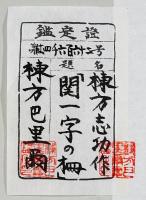 鑑定證
第四千六百六十二号
題名
棟方志功作
「関一字の柵」
棟方巴里爾